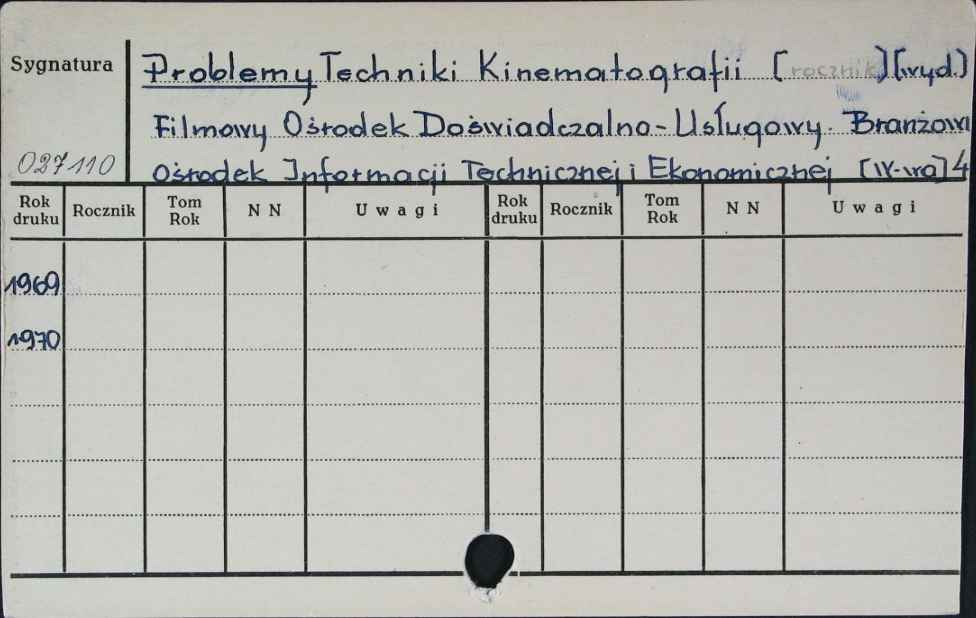 Sygnatura
Problemy Techniki Kinematografii [rocznik] [wyd.]
Filmowy Ośrodek Doświadczalno-Usługowy. Branżowy
027110
Ośrodek Informacji Technicznej i Ekonomicznej [W-wa] 4
Rok druku Rocznik Tom Rok N N Uwagi Rok druku Rocznik Tom Rok N N Uwagi
1969
1970